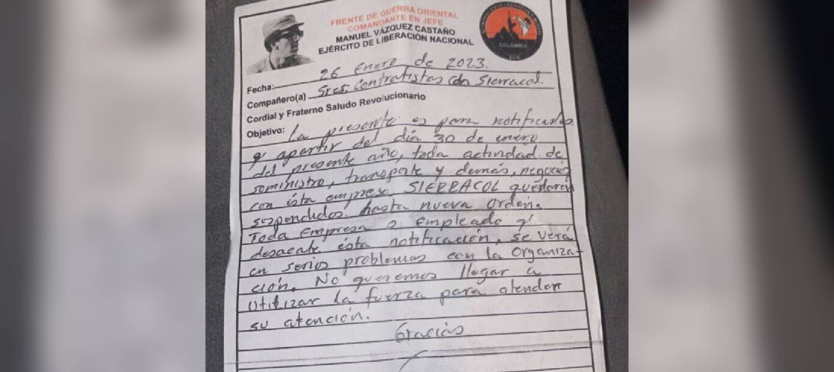 FRENTE DE GUERRA ORIENTAL
COMANDANTE EN JEFE
MANUEL VÁZQUEZ CASTAÑO
EJÉRCITO DE LIBERACIÓN NACIONAL
COLOMBIA
Fecha: 26 Enero de 2023.
Compañero(a) Sres: Contratistas con Sierracol.
Cordial y Fraterno Saludo Revolucionario
Objetivo: La presente es para notificarles
q' apartir del día 30 de enero
del presente año, toda actividad de
suministro, transporte y demás, negocios
con ésta empresa SIERRACOL quedaran
suspendidos. hasta nueva orden.
Toda Empresa o Empleado q'
desacate ésta notificación, se verá
en serios problemas con la Organiza-
ción. No queremos llegar a
utilizar la fuerza para atender
su atención.
Gracias